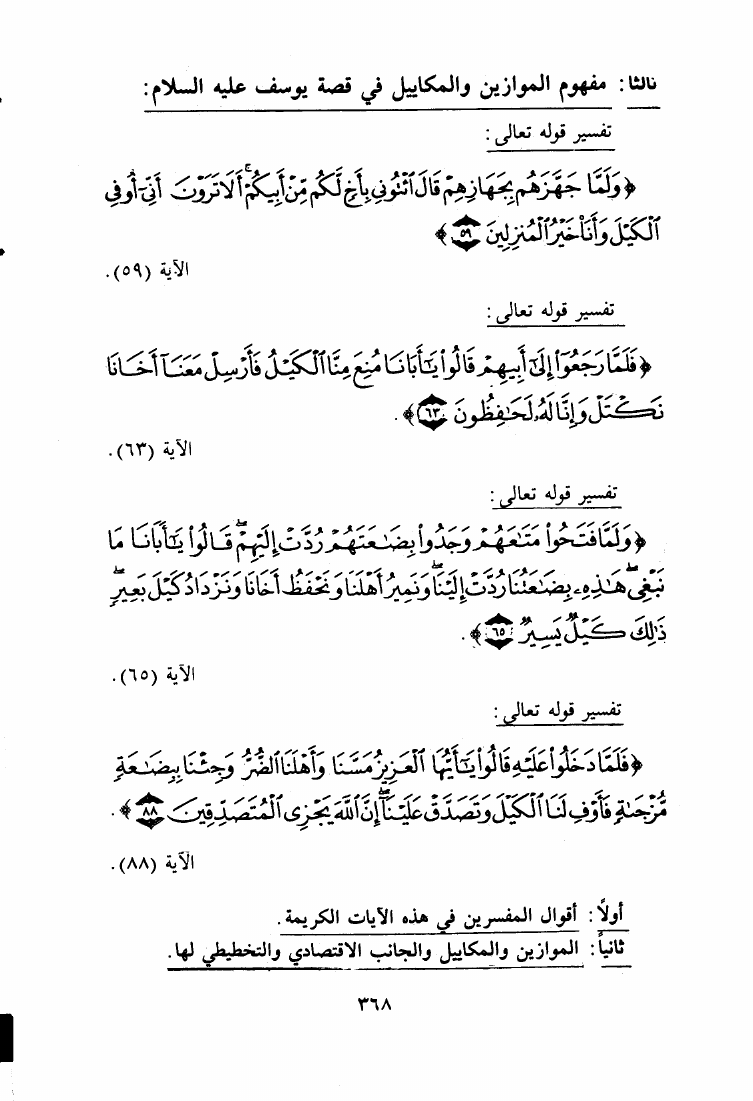 ثالثا: مفهوم الموازين والمكاييل في قصة يوسف عليه السلام:
تفسير قوله تعالى:
﴿وَلَمَّا جَهَّزَهُم بِجَهَازِهِمْ قَالَ ٱئْتُونِي بِأَخٍ لَّكُم مِّنْ أَبِيكُمْ ۚ أَلَا تَرَوْنَ أَنِّيٓ أُوفِي
ٱلْكَيْلَ وَأَنَا۠ خَيْرُ ٱلْمُنزِلِينَ ٥٩﴾
الآية (٥٩).
تفسير قوله تعالى:
﴿فَلَمَّا رَجَعُوٓا۟ إِلَىٰٓ أَبِيهِمْ قَالُوا۟ يَـٰٓأَبَانَا مُنِعَ مِنَّا ٱلْكَيْلُ فَأَرْسِلْ مَعَنَآ أَخَانَا
نَكْتَلْ وَإِنَّا لَهُۥ لَحَـٰفِظُونَ ٦٣﴾.
الآية (٦٣).
تفسير قوله تعالى:
﴿وَلَمَّا فَتَحُوا۟ مَتَـٰعَهُمْ وَجَدُوا۟ بِضَـٰعَتَهُمْ رُدَّتْ إِلَيْهِمْ ۖ قَالُوا۟ يَـٰٓأَبَانَا مَا
نَبْغِي ۖ هَـٰذِهِۦ بِضَـٰعَتُنَا رُدَّتْ إِلَيْنَا ۖ وَنَمِيرُ أَهْلَنَا وَنَحْفَظُ أَخَانَا وَنَزْدَادُ كَيْلَ بَعِيرٍ ۖ
ذَٰلِكَ كَيْلٌ يَسِيرٌ ٦٥﴾.
الآية (٦٥).
تفسير قوله تعالى:
﴿فَلَمَّا دَخَلُوا۟ عَلَيْهِ قَالُوا۟ يَـٰٓأَيُّهَا ٱلْعَزِيزُ مَسَّنَا وَأَهْلَنَا ٱلضُّرُّ وَجِئْنَا بِبِضَـٰعَةٍ
مُّزْجَىٰةٍ فَأَوْفِ لَنَا ٱلْكَيْلَ وَتَصَدَّقْ عَلَيْنَآ ۖ إِنَّ ٱللَّهَ يَجْزِى ٱلْمُتَصَدِّقِينَ ٨٨﴾.
الآية (٨٨).
أولاً: أقوال المفسرين في هذه الآيات الكريمة.
ثانياً: الموازين والمكاييل والجانب الاقتصادي والتخطيطي لها.
٣٦٨